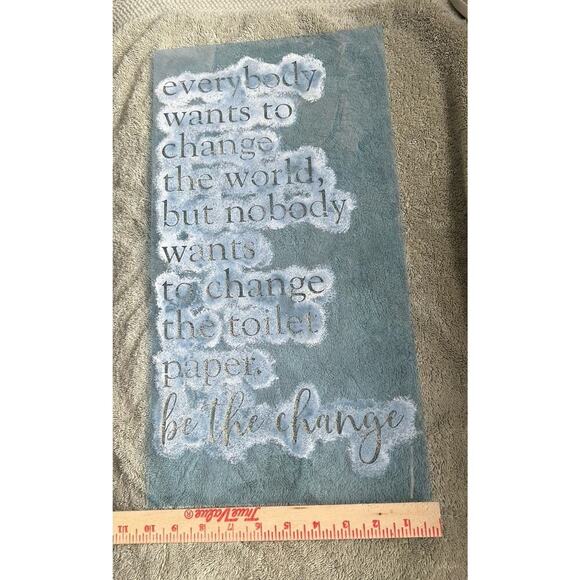 everybody
wants to
change
the world,
but nobody
wants
to change
the toilet
paper.
be the change
True Value®
11 10 9 8 7 6 5 4 3 2 1